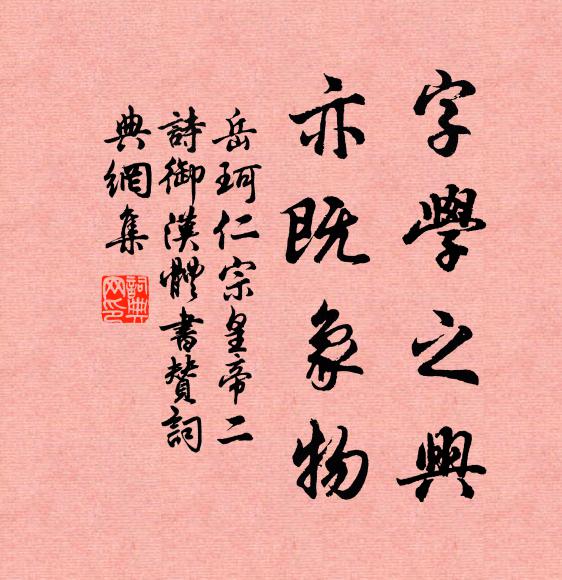 字學之興
亦既象物
岳珂仁宗皇帝二
詩御漢體書贊詞
典網集
詞典
网印